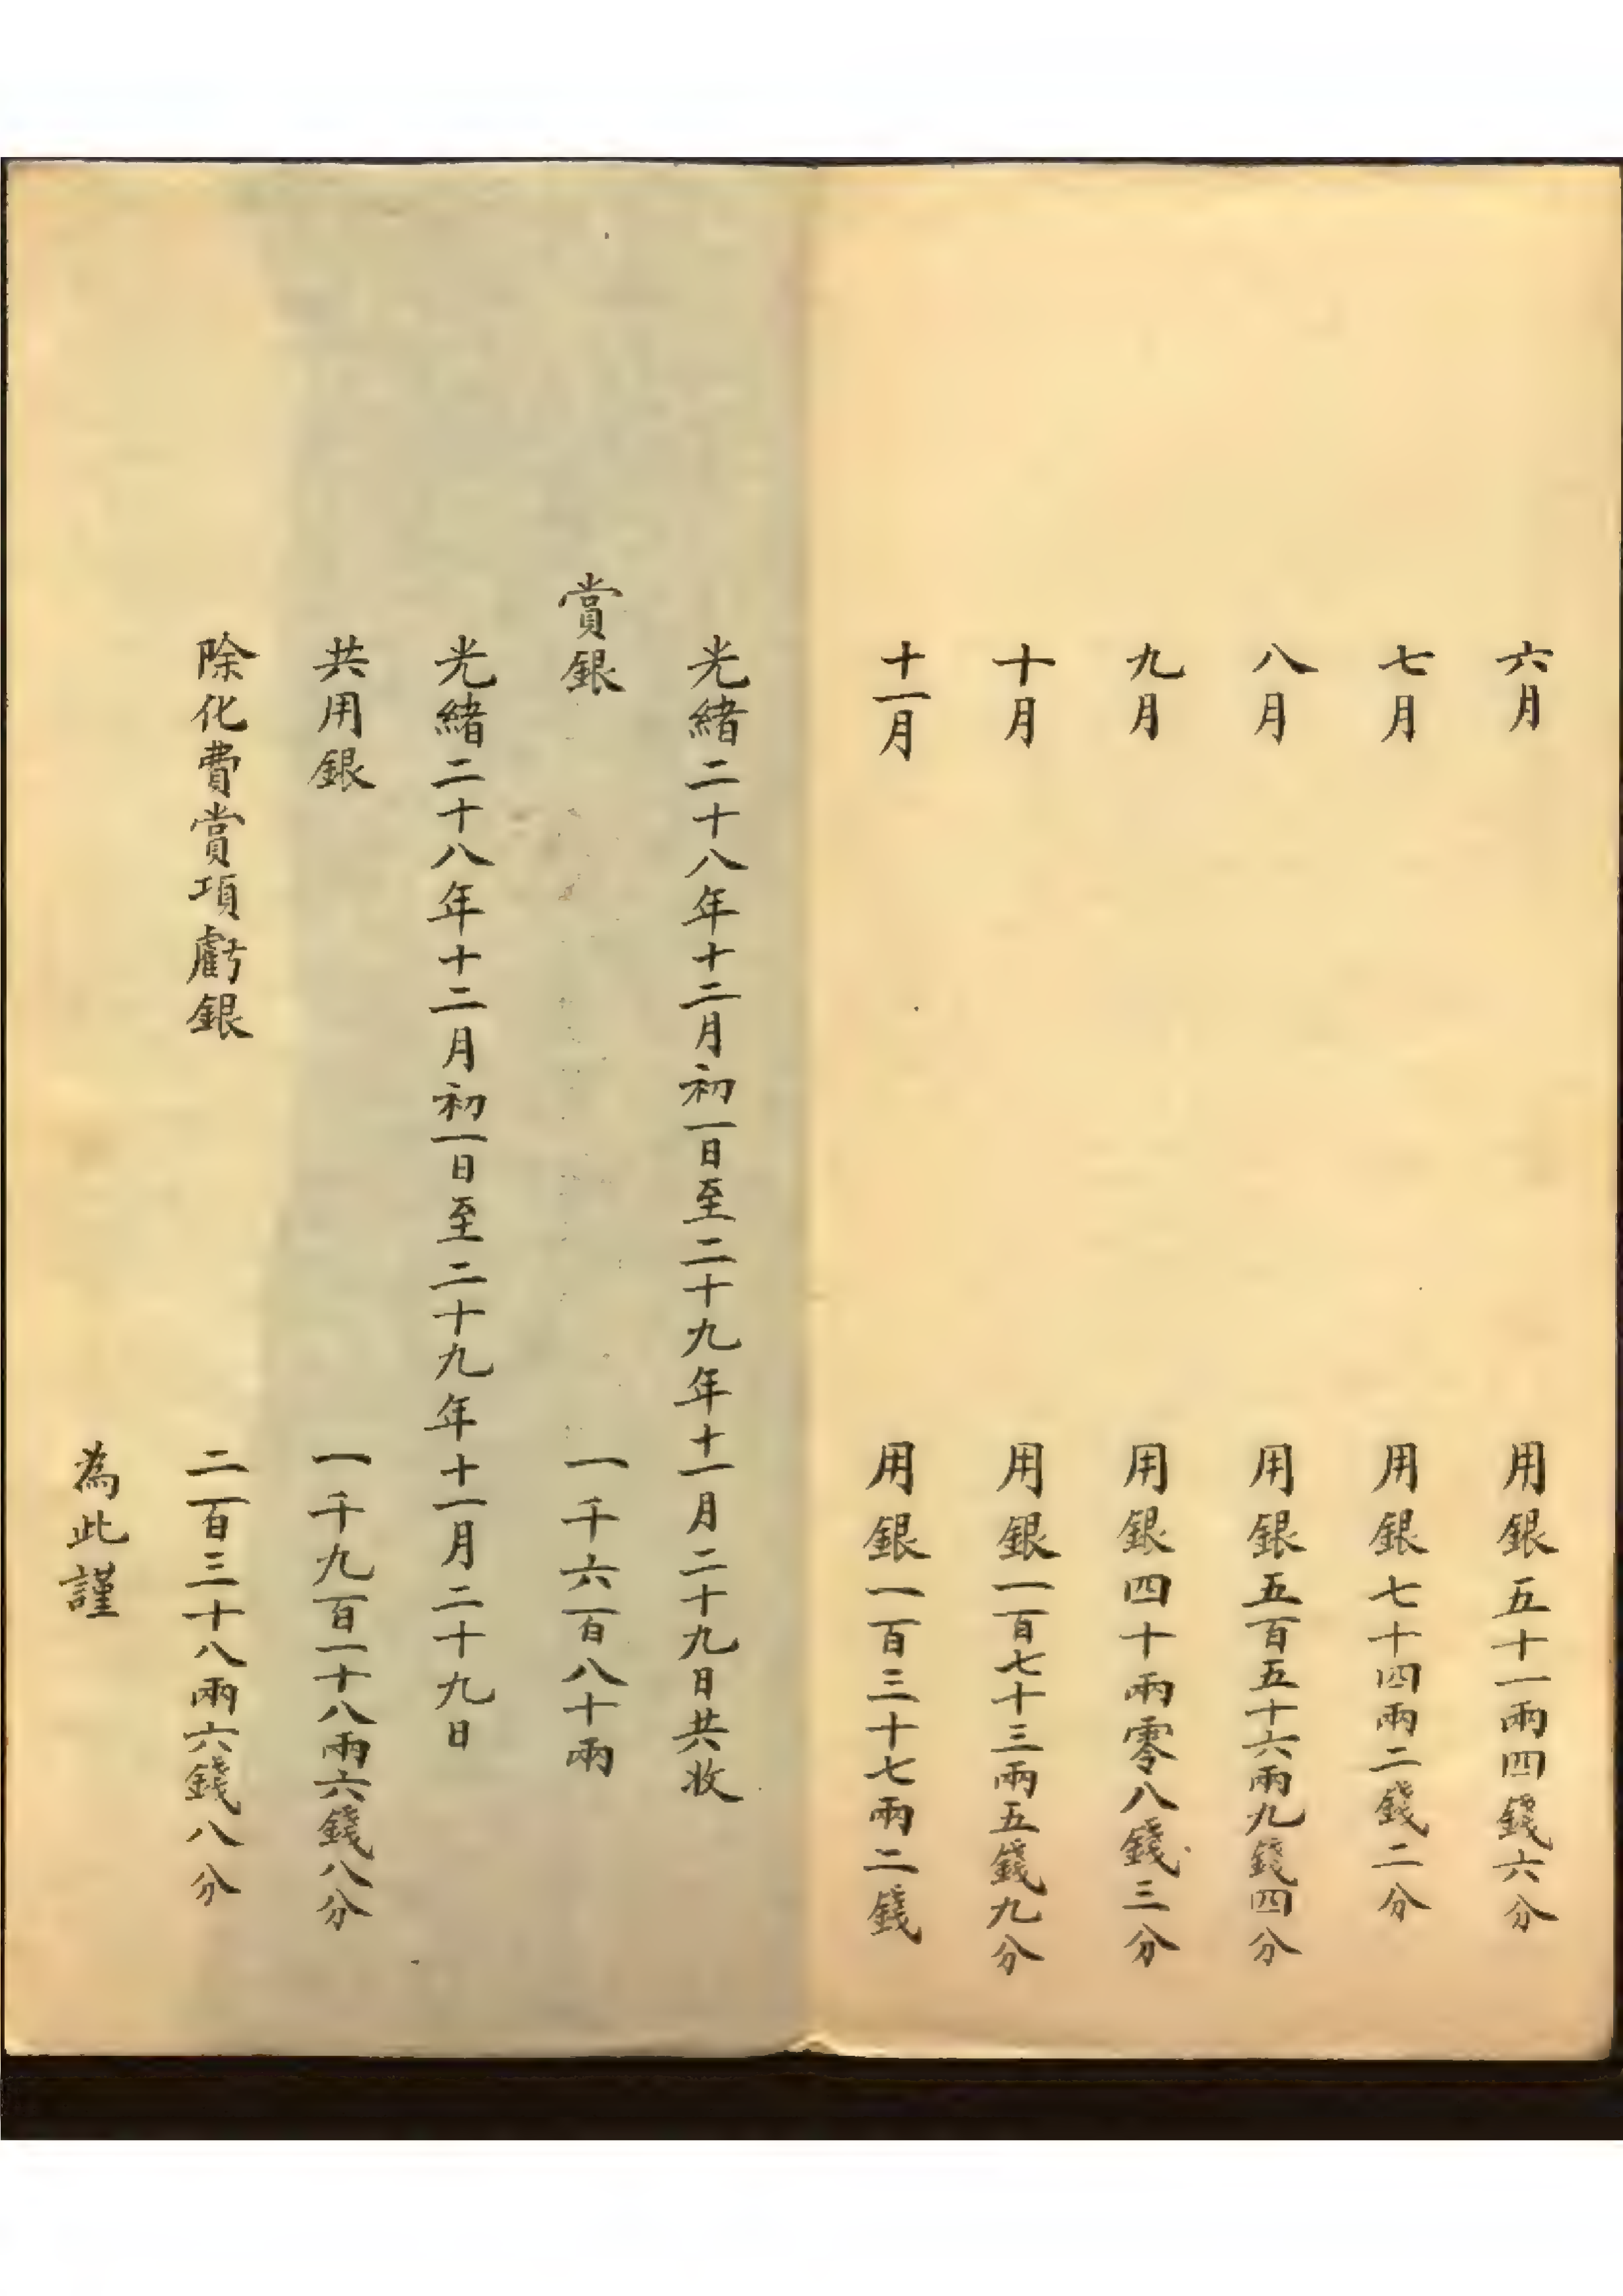 六月 用銀五十一兩四錢六分
七月 用銀七十四兩二錢二分
八月 用銀五百五十六兩九錢四分
九月 用銀四十兩零八錢三分
十月 用銀一百七十三兩五錢九分
十一月 用銀一百三十七兩二錢
光緒二十八年十二月初一日至二十九年十一月二十九日共收
賞銀 一千六百八十兩
光緒二十八年十二月初一日至二十九年十一月二十九日
共用銀 一千九百一十八兩六錢八分
除化費賞項虧銀 二百三十八兩六錢八分
為此謹